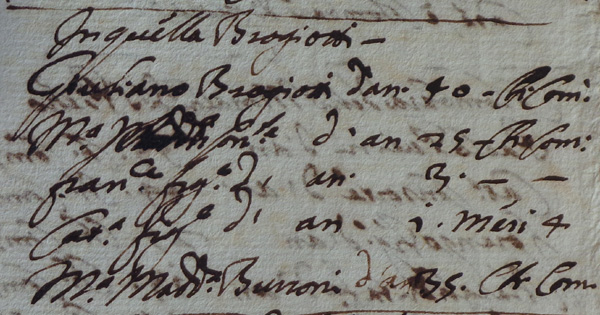 In quella Bragiotti -
Giuliano Bragiotti d'an. 40 - Ch: Com:
M.ª d. an 25 - Ch: Com:
fran.ca fig.ª d. an. 3. - -
Cat.ª fig.ª d. an 1. mesi 4
M.ª Madd.ª Burroni d'an 35. Ch. Com.